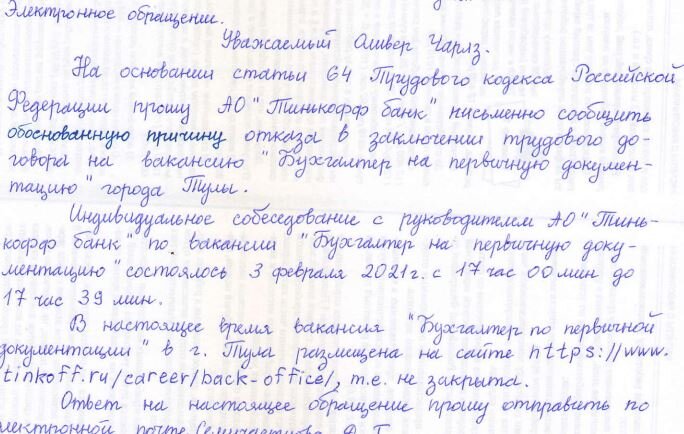 Электронное обращении.
Уважаемый Оливер Чарлз.
На основании статьи 64 Трудового кодекса Российской
Федерации прошу АО "Тинькофф банк" письменно сообщить
обоснованную причину отказа в заключении трудового до-
говора на вакансию "Бухгалтер на первичную докумен-
тацию" города Тулы.
Индивидуальное собеседование с руководителем АО "Тинь-
кофф банк" по вакансии "Бухгалтер на первичную доку-
ментацию" состоялось 3 февраля 2021г. с 17 час 00 мин до
17 час 39 мин.
В настоящее время вакансия "Бухгалтер по первичной
документации" в г. Тула размещена на сайте https://www.
tinkoff.ru/career/back-office/, т.е. не закрыта.
Ответ на настоящее обращение прошу отправить по
электронной почте